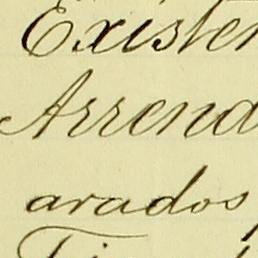 Existen
Arrend
arados